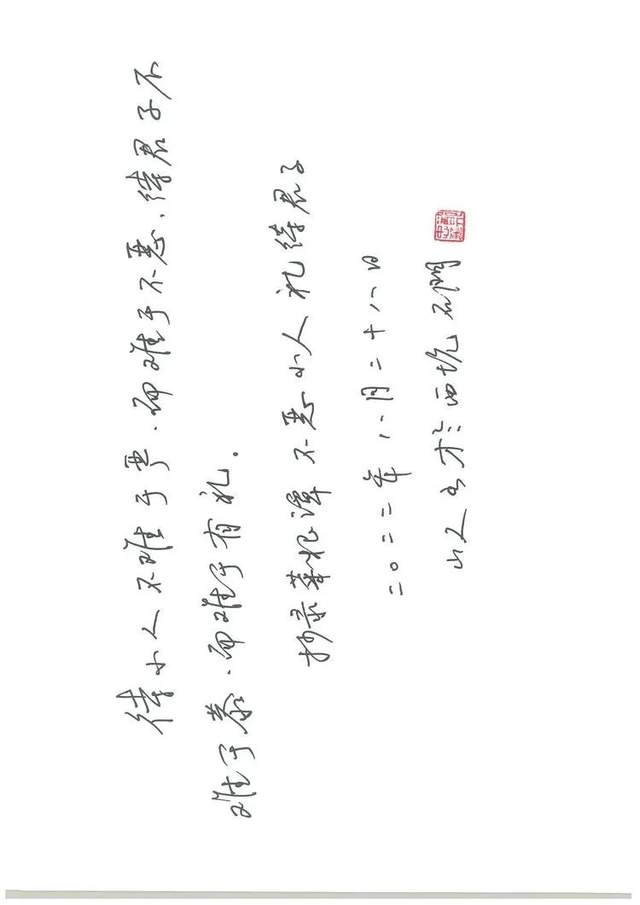 待小人不难于严、而难于不恶、待君子不
难于恭、而难于有礼。
抄录菜根谭 不恶小人 礼待君子
二〇二二年八月二十八日
山人书于西坑石涧